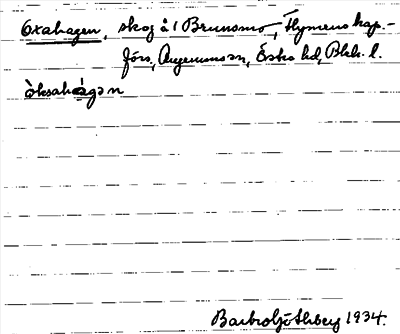 Oxahagen, skog å 1 Brunsmo, Flymens kap.-
förs, Augerums sn, Östra hd, Blek. l.
òksahàgan
Barbro Göthberg 1934.